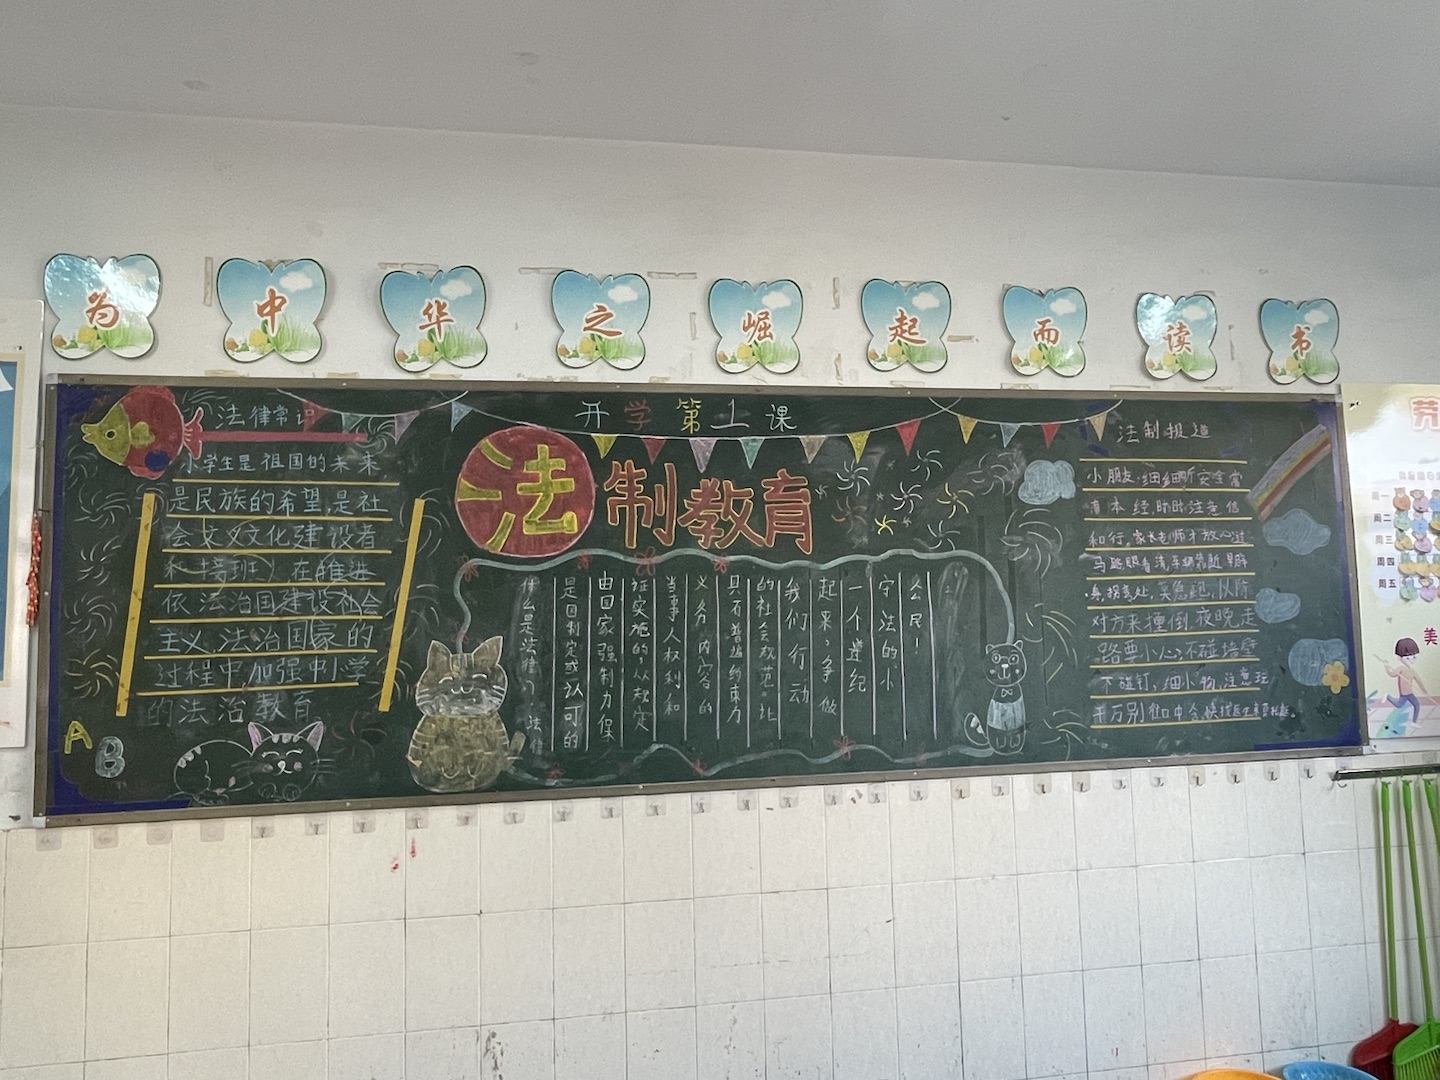 为中华之崛起而读书
开学第1课
法制教育
法律常识
小学生是祖国的未来
是民族的希望,是社
会文义文化建设者
和接班人在推进
依法治国建设社会
主义,法治国家的
过程中,加强中小学
的法治教育
A
B
什么是法律?法律
是国制定或认可的
由国家强制力保
证实施的,以规定
当事人权利和
义务内容的
具有普遍约束力
的社会规范。让
我们行动
起来,争做
一个遵纪
守法的小
公民!
法制报道
小朋友,细细听安全常
和行,家长老师才放心过
对方来撞倒,夜晚走
路要小心,不碰墙壁
不碰钉,细小物,注意玩
周一
周二
周三
周四
周五
美